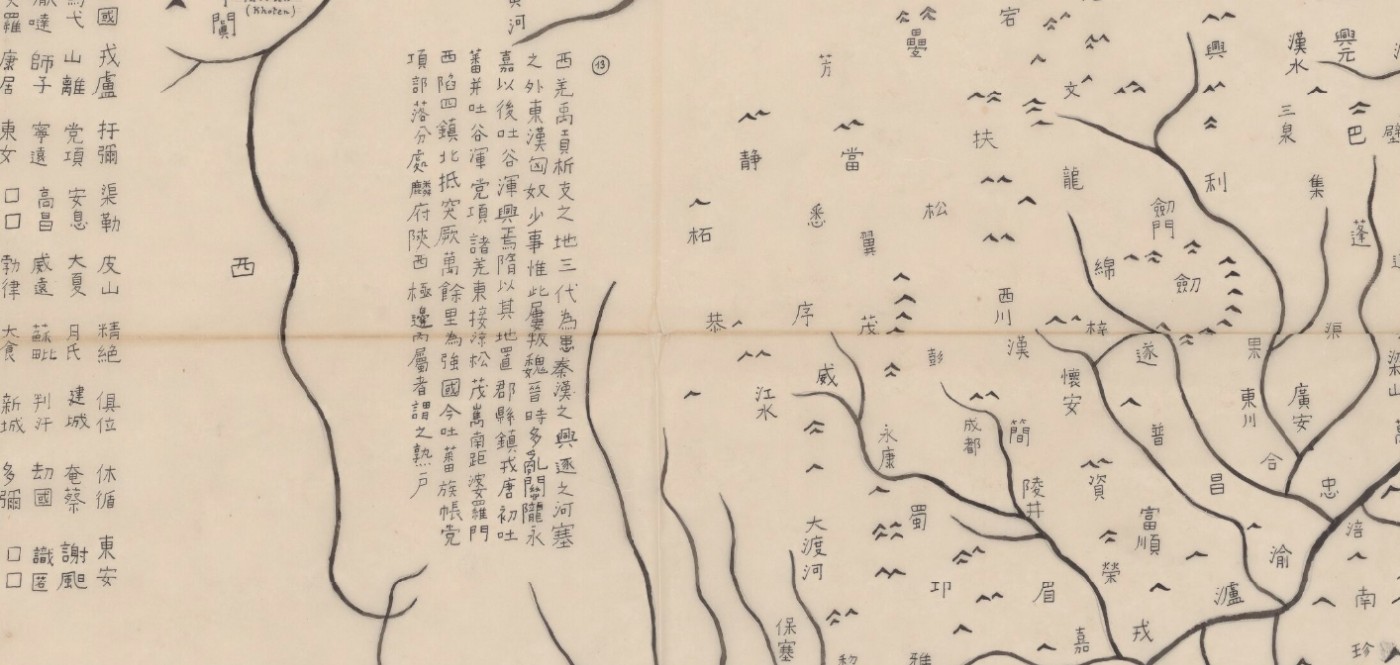 ⑬
西羌禹貢析支之地三代為患秦漢之興逐之河塞
之外東漢匈奴少事惟此屢叛魏晉時多亂關隴永
嘉以後吐谷渾興焉隋以其地置郡縣鎮戎唐初吐
蕃并吐谷渾党項諸羌東接涼松茂嶲南距婆羅門
西陷四鎮北抵突厥萬餘里為強國今吐蕃族帳党
項部落分處麟府陝西極邊內屬者謂之熟戶
國
戎盧
扜彌
渠勒
皮山
精絕
俱位
休循
東安
山離
党項
安息
大夏
月氏
建城
奄蔡
謝䫻
噠
師子
寧遠
高昌
威遠
蘇毗
判汗
劫國
識匿
羅
康居
東女
□□
勃律
大食
新城
多彌
□□
闐
(Khoten)
河
西
宕
疊
芳
文
興
漢水
興元
三泉
巴
扶
靜
當
龍
利
集
劍門
蓬
柘
悉
翼
松
綿
劍
西川
恭
序
茂
梓
漢
遂
果
渠
梁山
彭
威
江水
懷安
東川
廣安
成都
簡
普
永康
合
資
昌
忠
陵井
蜀
富順
涪
大渡河
榮
渝
邛
眉
瀘
南
保塞
嘉
戎
珍
黎
雅